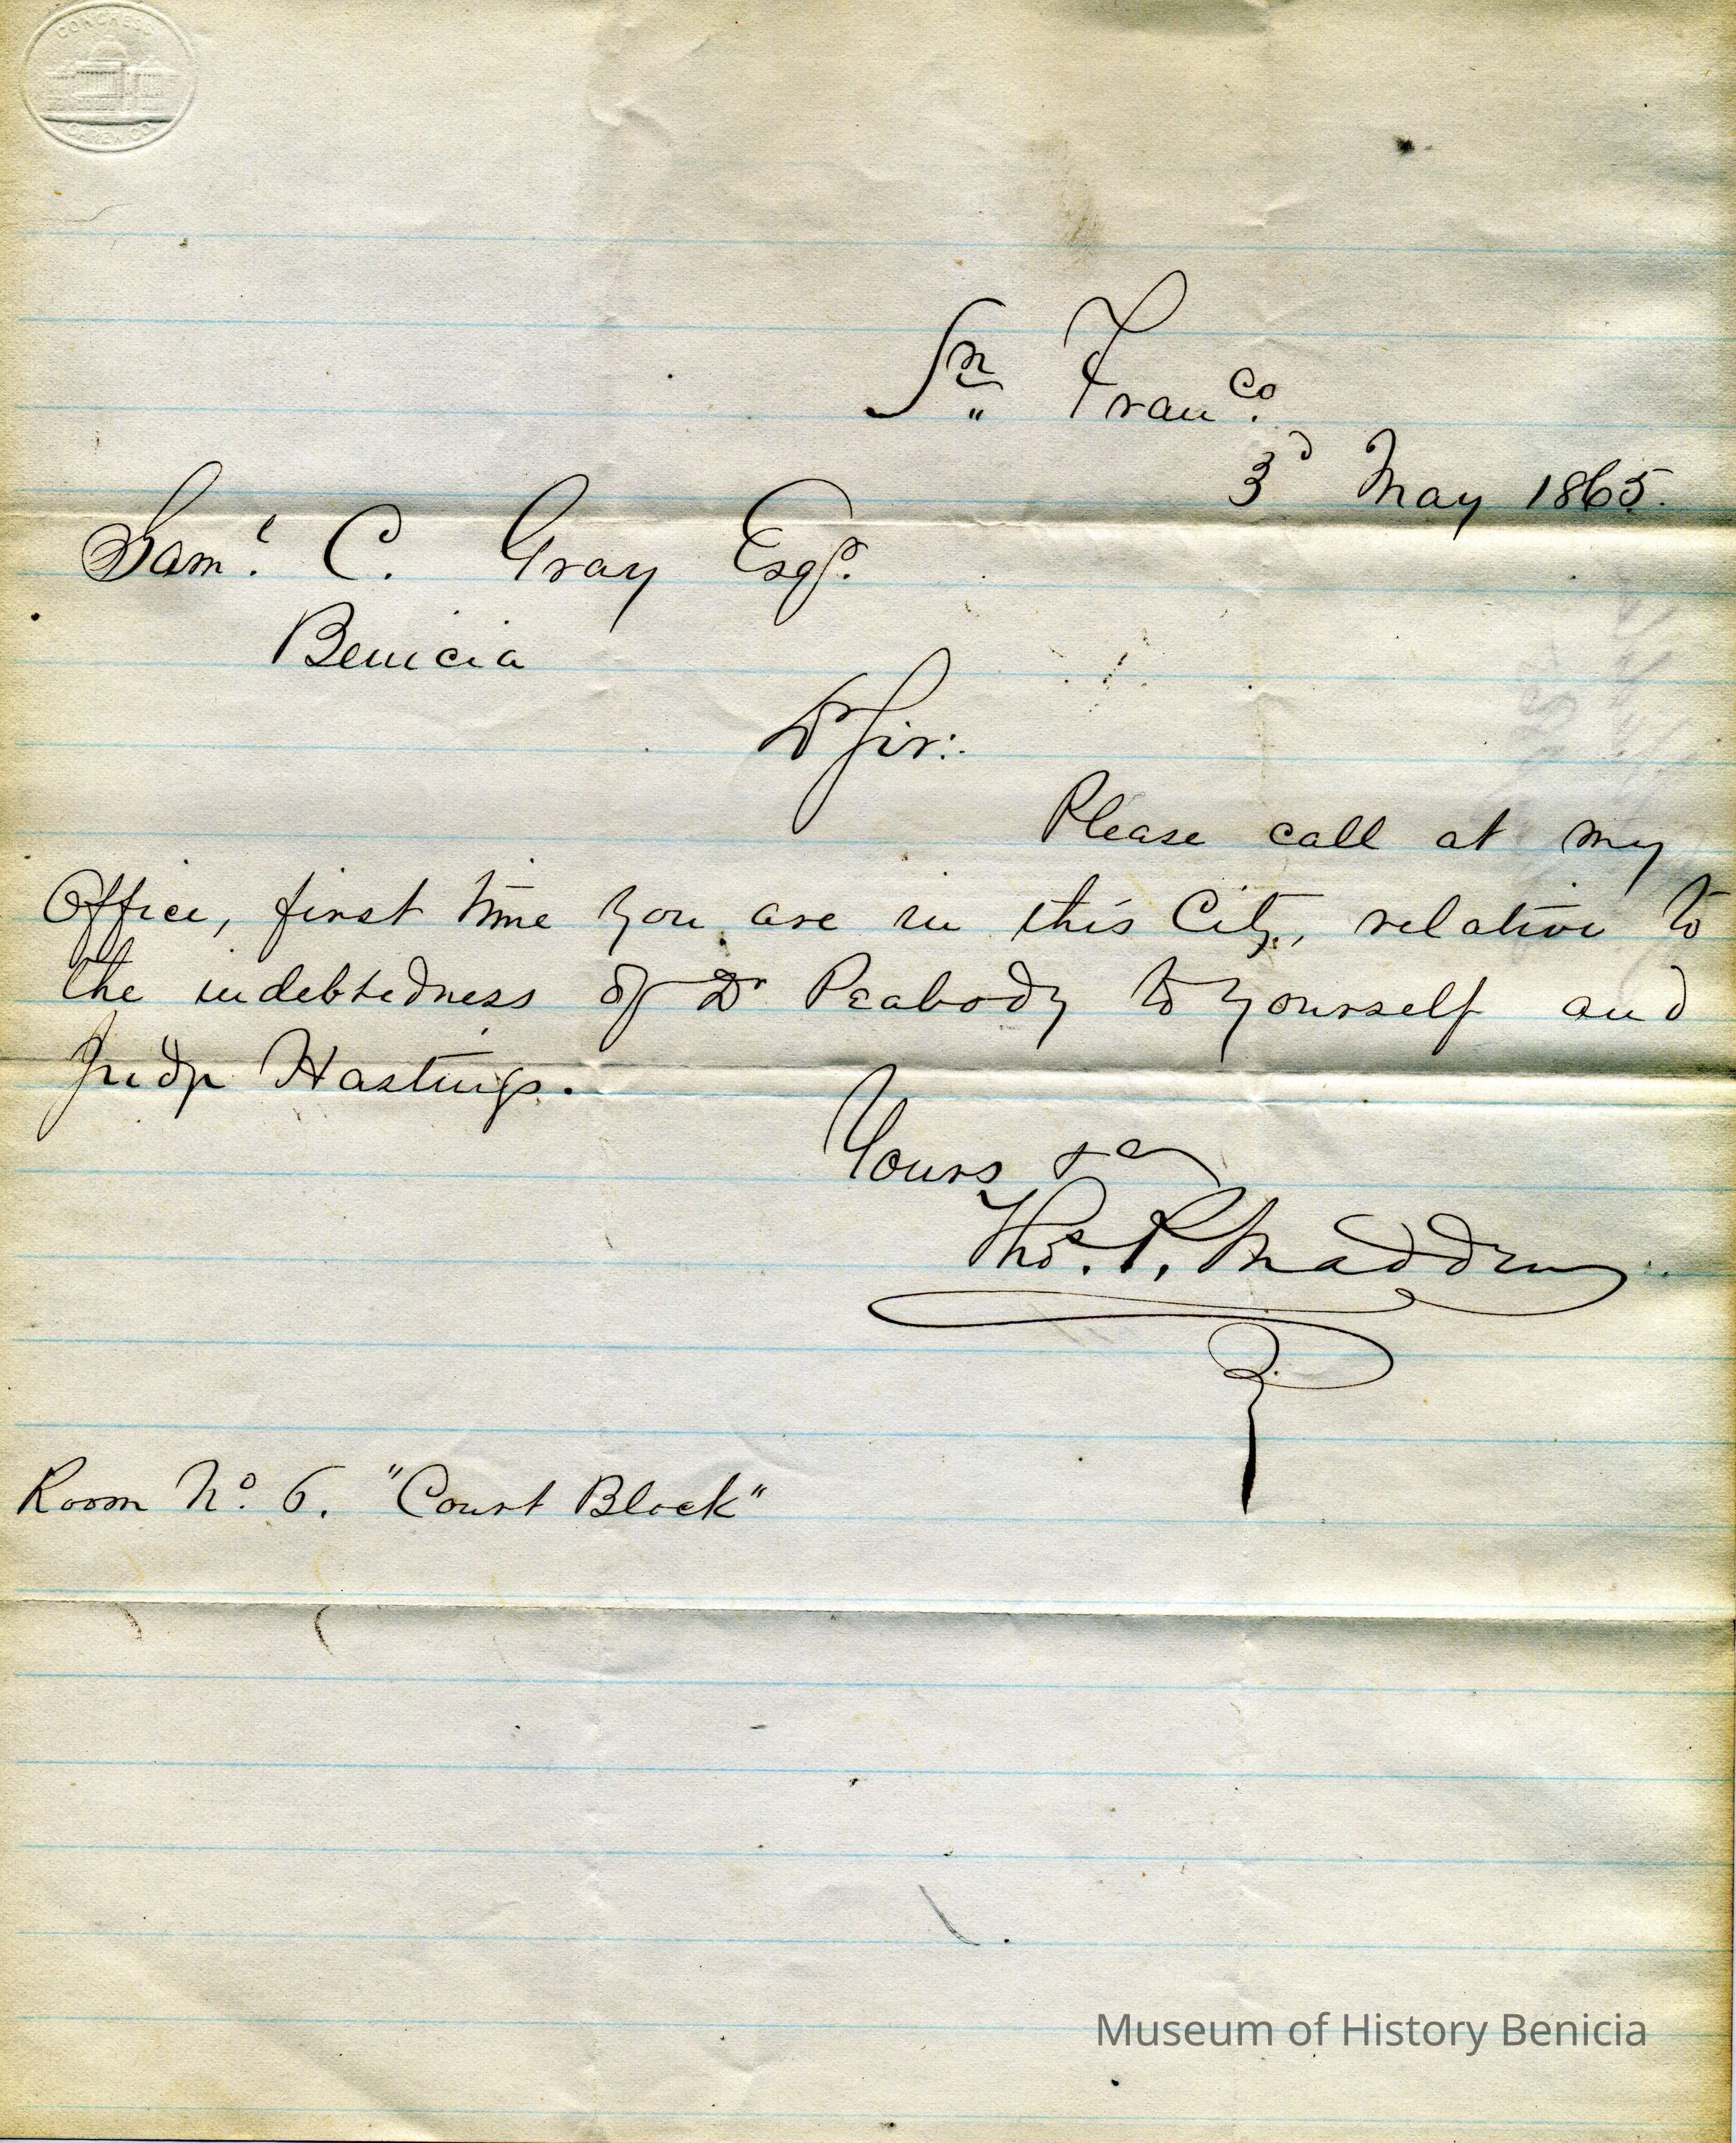 CONGRESS
CAREW CO.
Sn Franco.
3d May 1865.
Saml. C. Gray Esqr.
Benicia
Dr Sir:
Please call at my
Office, first time you are in this City, relative to
the indebtedness of Dr Peabody to yourself and
Judge Hastings.
Yours &c
Thos. P. Madden
Room No. 6. "Court Block"
Museum of History Benicia